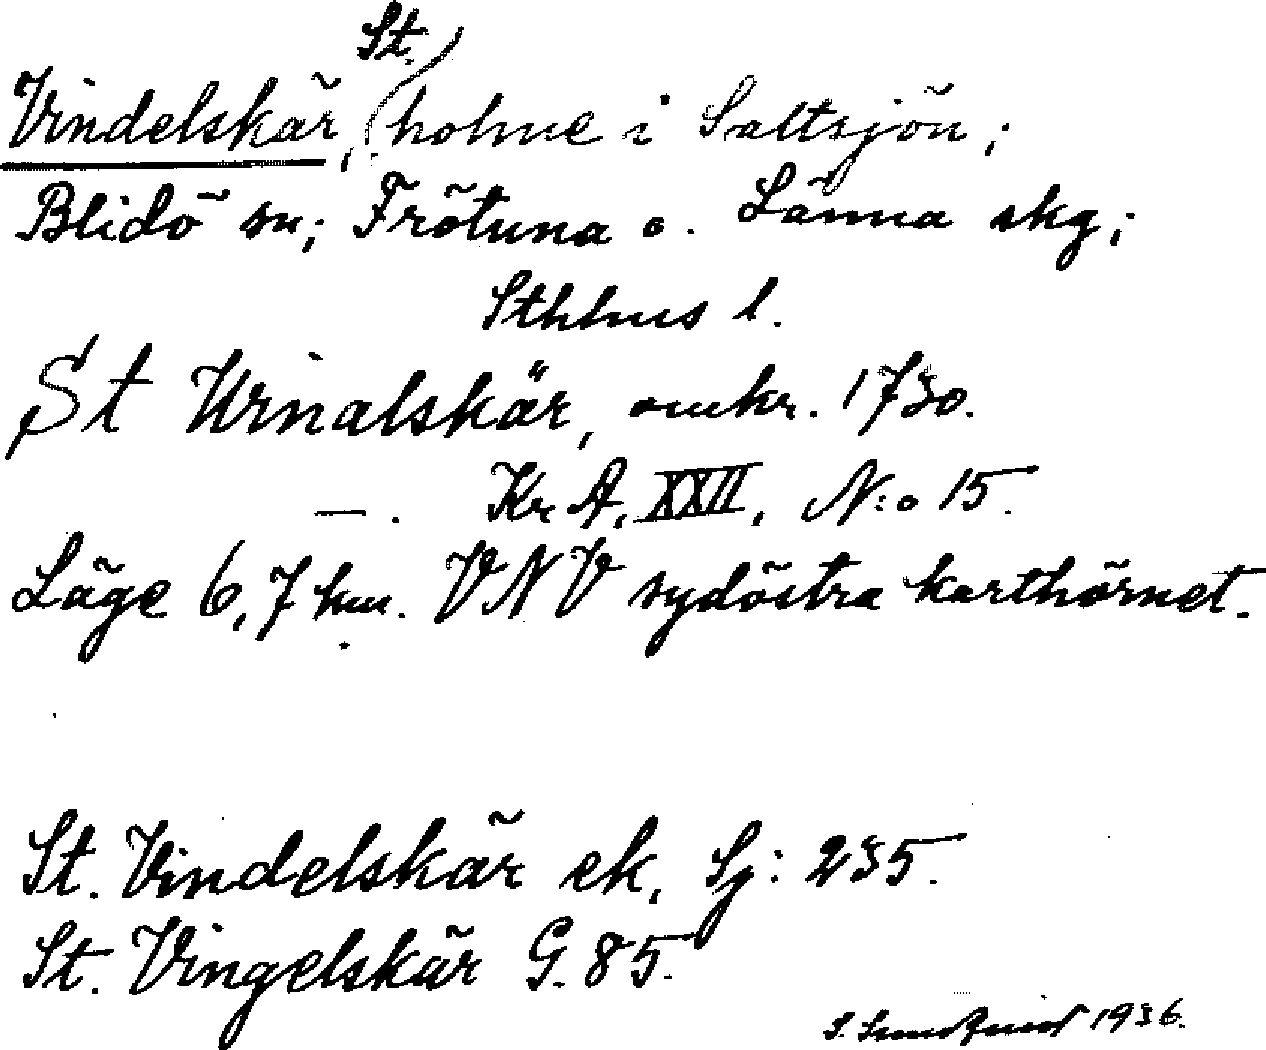 Vindelskär, St. holme i Saltsjön;
Blidö sn; Frötuna o. Länna skg;
Sthhus l.
St Urnalskär, omkr. 1730.
—. Kr A, XXII, N:o 15.
Läge 6,7 km. VNV sydöstra karthörnet.
St. Vindelskär ek, Sj: 235.
St. Vingelskär G. 85.
S. Sundquist 1936.